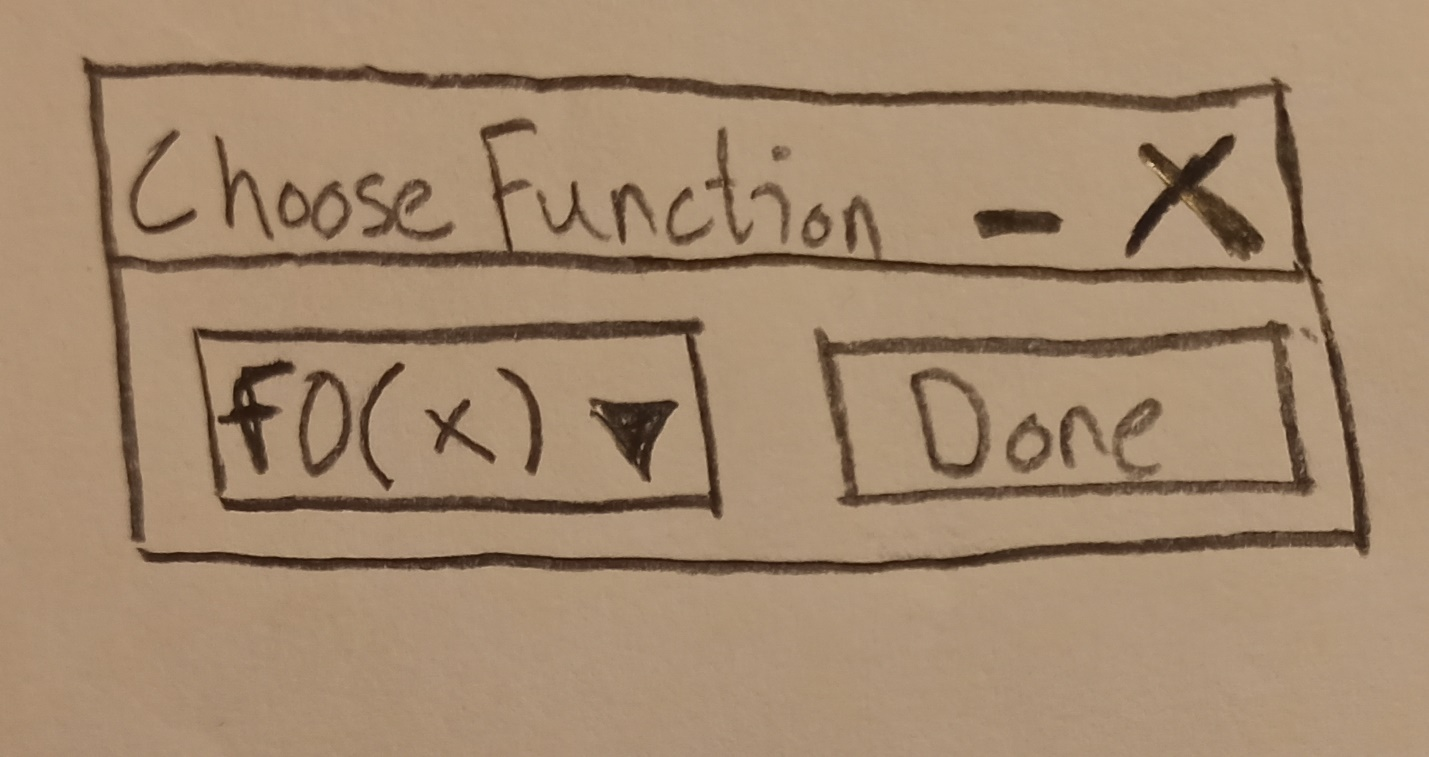 Choose Function - X
f0(x) ▼ Done